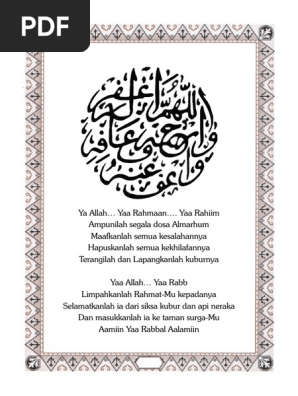 PDF
اللهم اغفر له
وارحمه وعافه
واعف عنه
Ya Allah… Yaa Rahmaan…. Yaa Rahiim
Ampunilah segala dosa Almarhum
Maafkanlah semua kesalahannya
Hapuskanlah semua kekhilafannya
Terangilah dan Lapangkanlah kuburnya
Yaa Allah… Yaa Rabb
Limpahkanlah Rahmat-Mu kepadanya
Selamatkanlah ia dari siksa kubur dan api neraka
Dan masukkanlah ia ke taman surga-Mu
Aamiin Yaa Rabbal Aalamiin